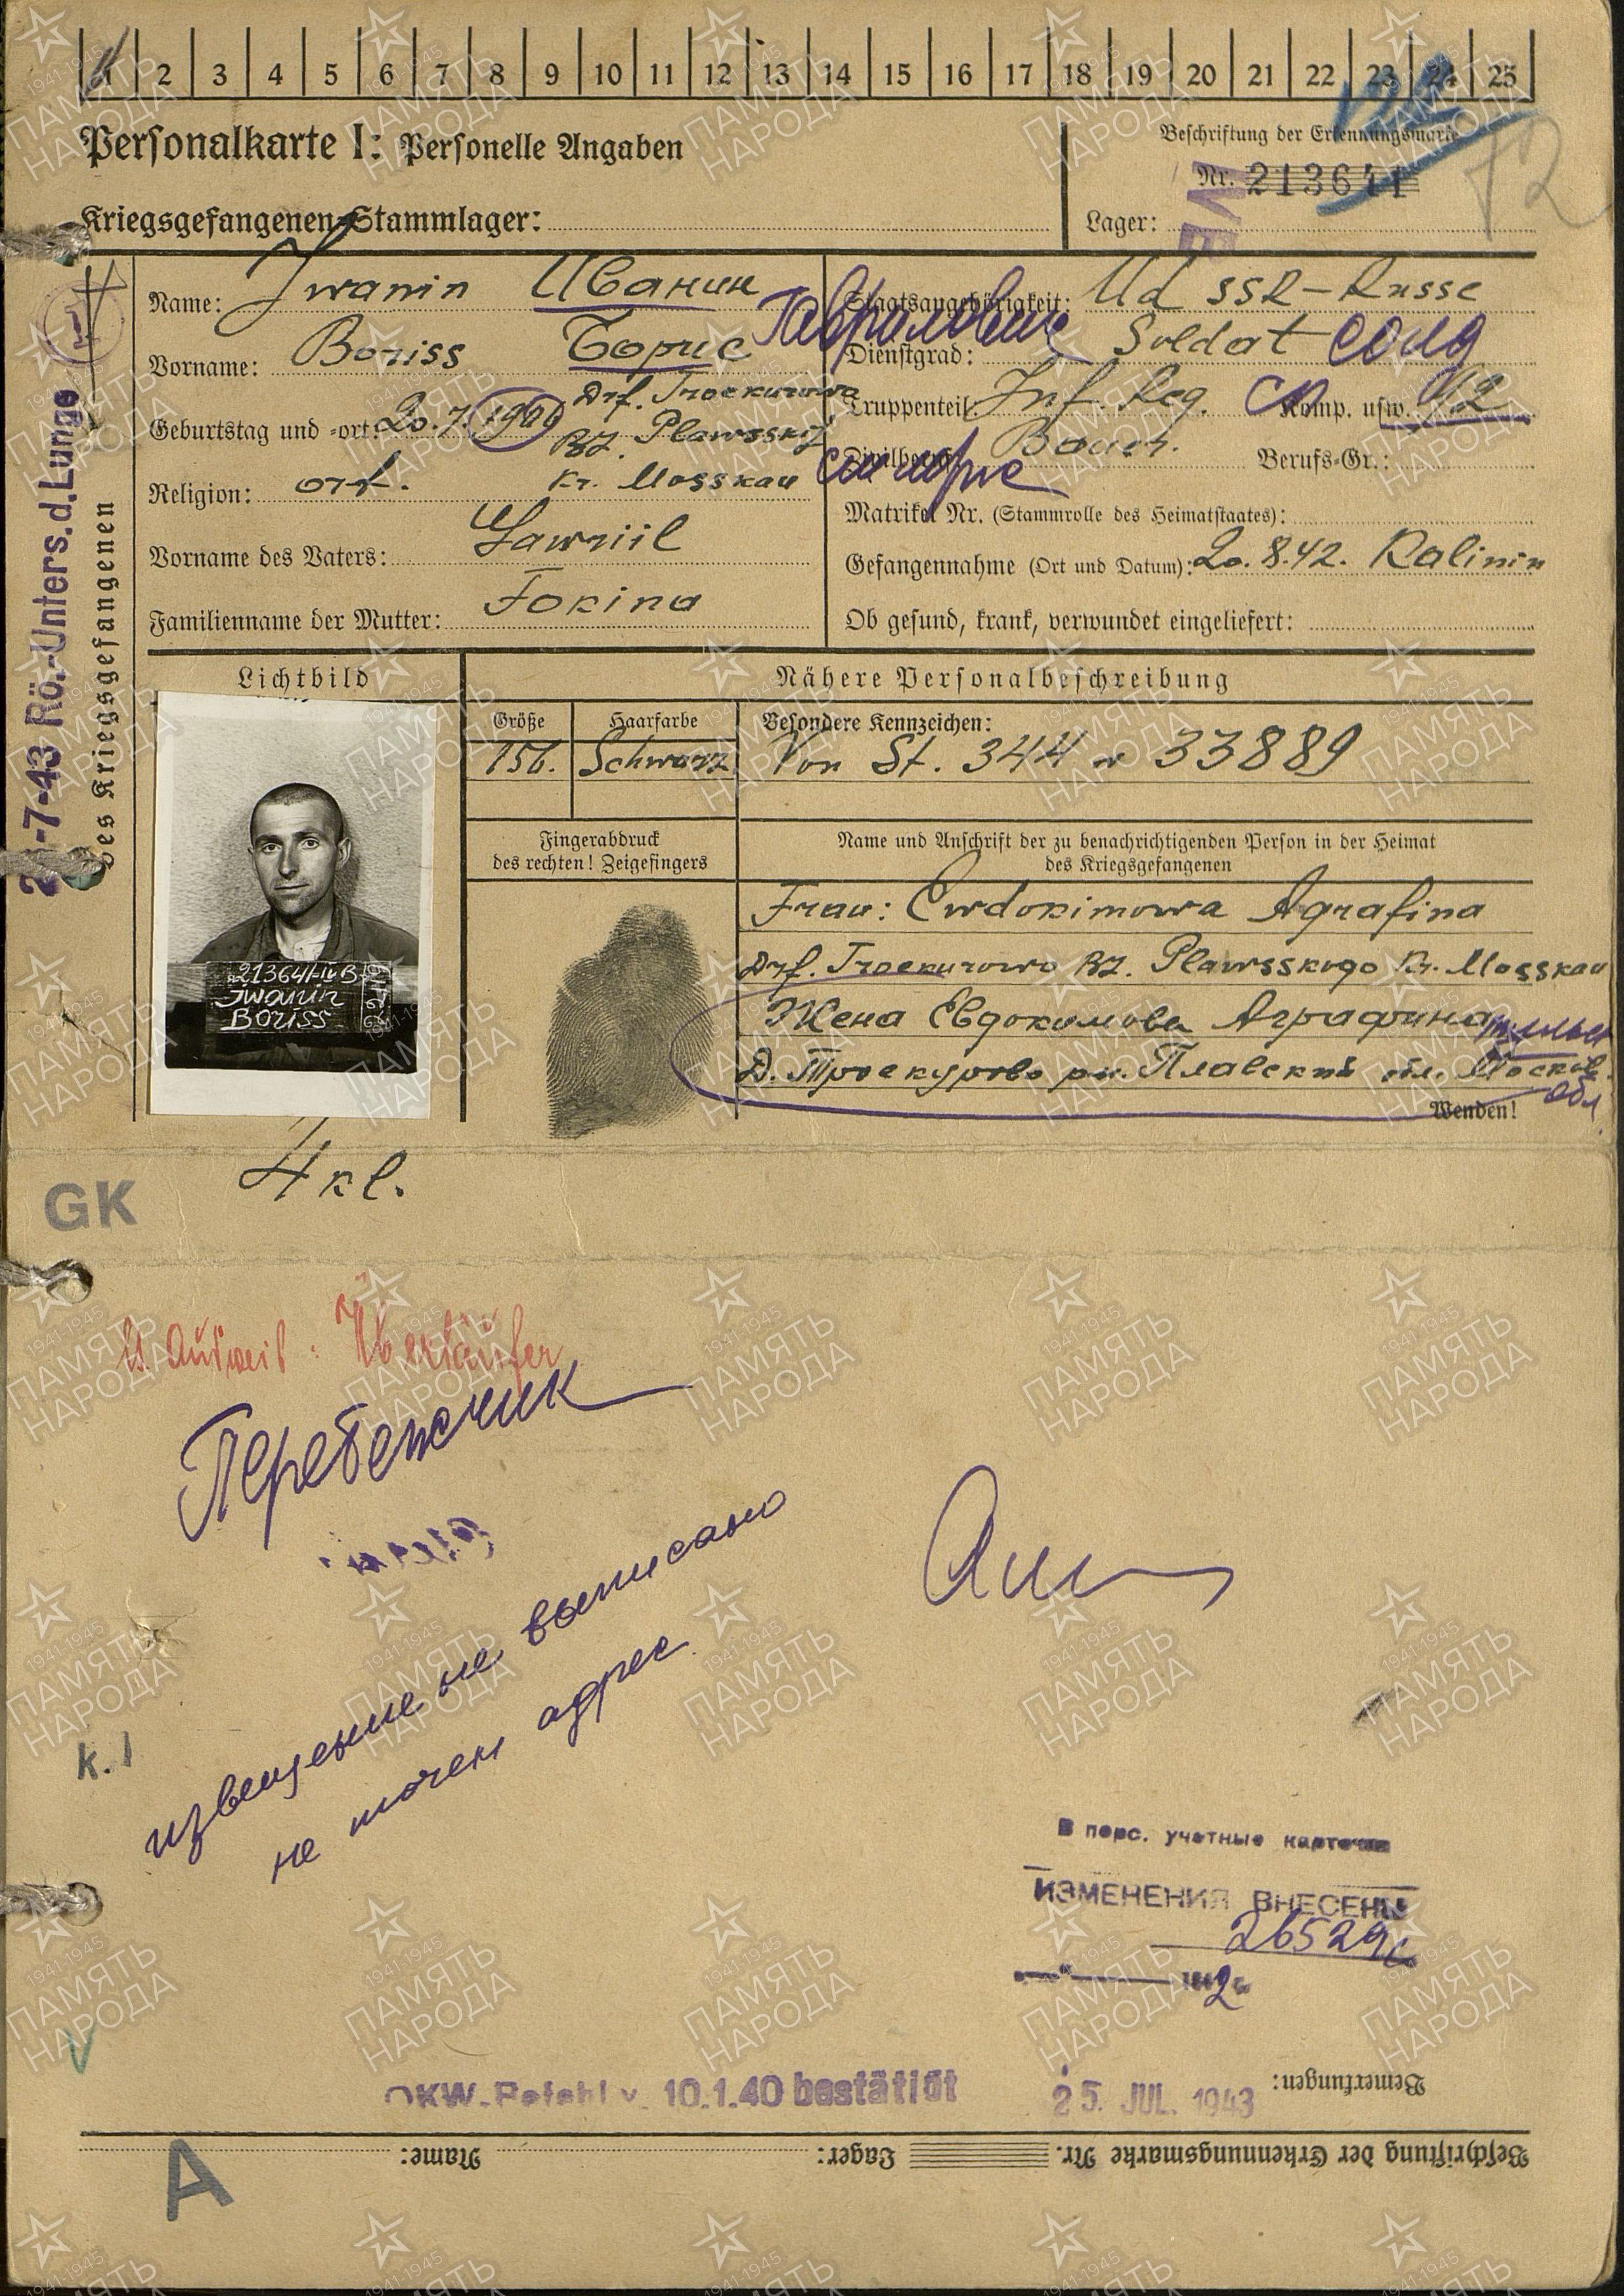 1 2 3 4 5 6 7 8 9 10 11 12 13 14 15 16 17 18 19 20 21 22 23 24 25
Personalkarte I: Personelle Angaben
Beschriftung der Erkennungsmarke
Nr. 213641
Kriegsgefangenen-Stammlager:
Lager:
IVB
12
Name: Iwanin Иванин
Гаврилович
Staatsangehörigkeit: Ud SSR-Russe
Vorname: Boriss Борис
Dienstgrad: Soldat солд
Geburtstag und -ort: 20.7.
Drf. Troekurowo
Bz. Plawsskij
Kr. Mosskau
Truppenteil: Inf. Reg. сп Komp. usw. 912
Zivilberuf: Bauer. Berufs-Gr.:
Religion: ort.
Matrikel Nr. (Stammrolle des Heimatstaates):
Vorname des Vaters: Gawriil
Gefangennahme (Ort und Datum): 20.8.42. Kalinin
Familienname der Mutter: Fokina
Ob gesund, krank, verwundet eingeliefert:
-7-43 Rö.-Unters.d.Lunge
des Kriegsgefangenen
Lichtbild
Nähere Personalbeschreibung
Größe Haarfarbe Besondere Kennzeichen:
156. Schwarz Von St. 344 № 33889
Fingerabdruck
des rechten! Zeigefingers
Name und Anschrift der zu benachrichtigenden Person in der Heimat
des Kriegsgefangenen
213641-IVB
Iwanin
Boriss
Frau: Ewdokimowa Agrafina
Drf. Troekurowo Bz. Plawsskogo Kr. Mosskau
Жена Евдокимова Аграфина
Д. Троекурово рн. Плавский обл. Москов.
обл
Wenden!
4 kl.
GK
lt. Ausweis: Überläufer
Перебежчик
извещение не выписано
не точен адрес
K. I
В перс. учетные карточки
ИЗМЕНЕНИЯ ВНЕСЕНЫ
26529с
OKW-Befehl v. 10.1.40 bestätigt
25. JUL. 1943
Bemerkungen:
Beschriftung der Erkennungsmarke Nr. Lager: Name:
A
1941-1945
ПАМЯТЬ
НАРОДА